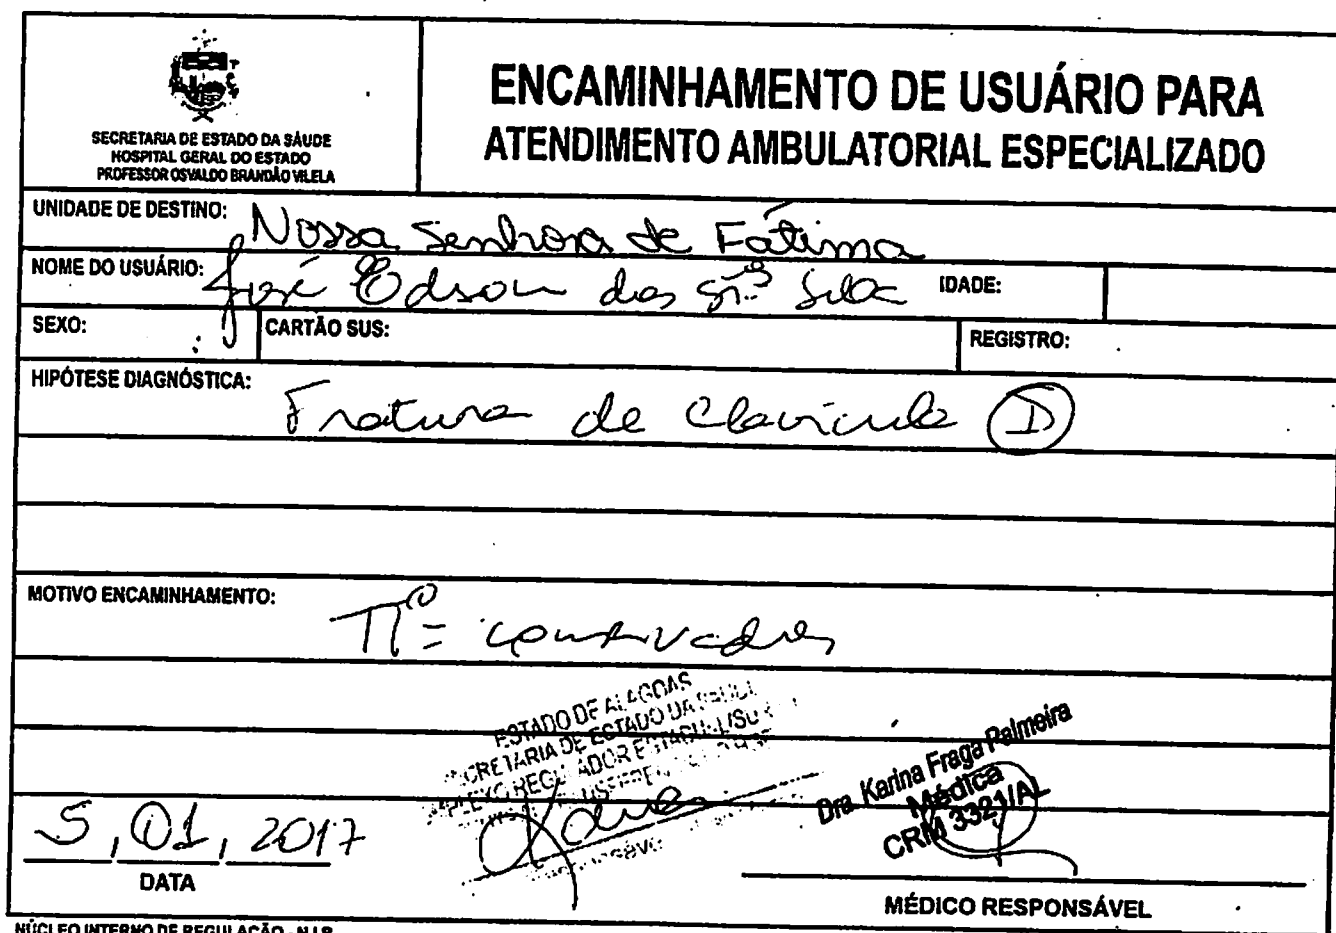 SECRETARIA DE ESTADO DA SAÚDE
HOSPITAL GERAL DO ESTADO
PROFESSOR OSVALDO BRANDÃO VILELA
ENCAMINHAMENTO DE USUÁRIO PARA
ATENDIMENTO AMBULATORIAL ESPECIALIZADO
UNIDADE DE DESTINO: Nossa Senhora de Fátima
NOME DO USUÁRIO: José Edson dos Stos Silva IDADE:
SEXO: CARTÃO SUS: REGISTRO:
HIPÓTESE DIAGNÓSTICA: Fratura de Clavicula D
MOTIVO ENCAMINHAMENTO: conservador
ESTADO DE ALAGOAS
DE ESTADO DA
Dra. Karina Fraga Palmeira
Médica
CRM 3321/AL
5, 01, 2017
DATA
MÉDICO RESPONSÁVEL
NÚCLEO INTERNO DE REGULAÇÃO - N.I.R